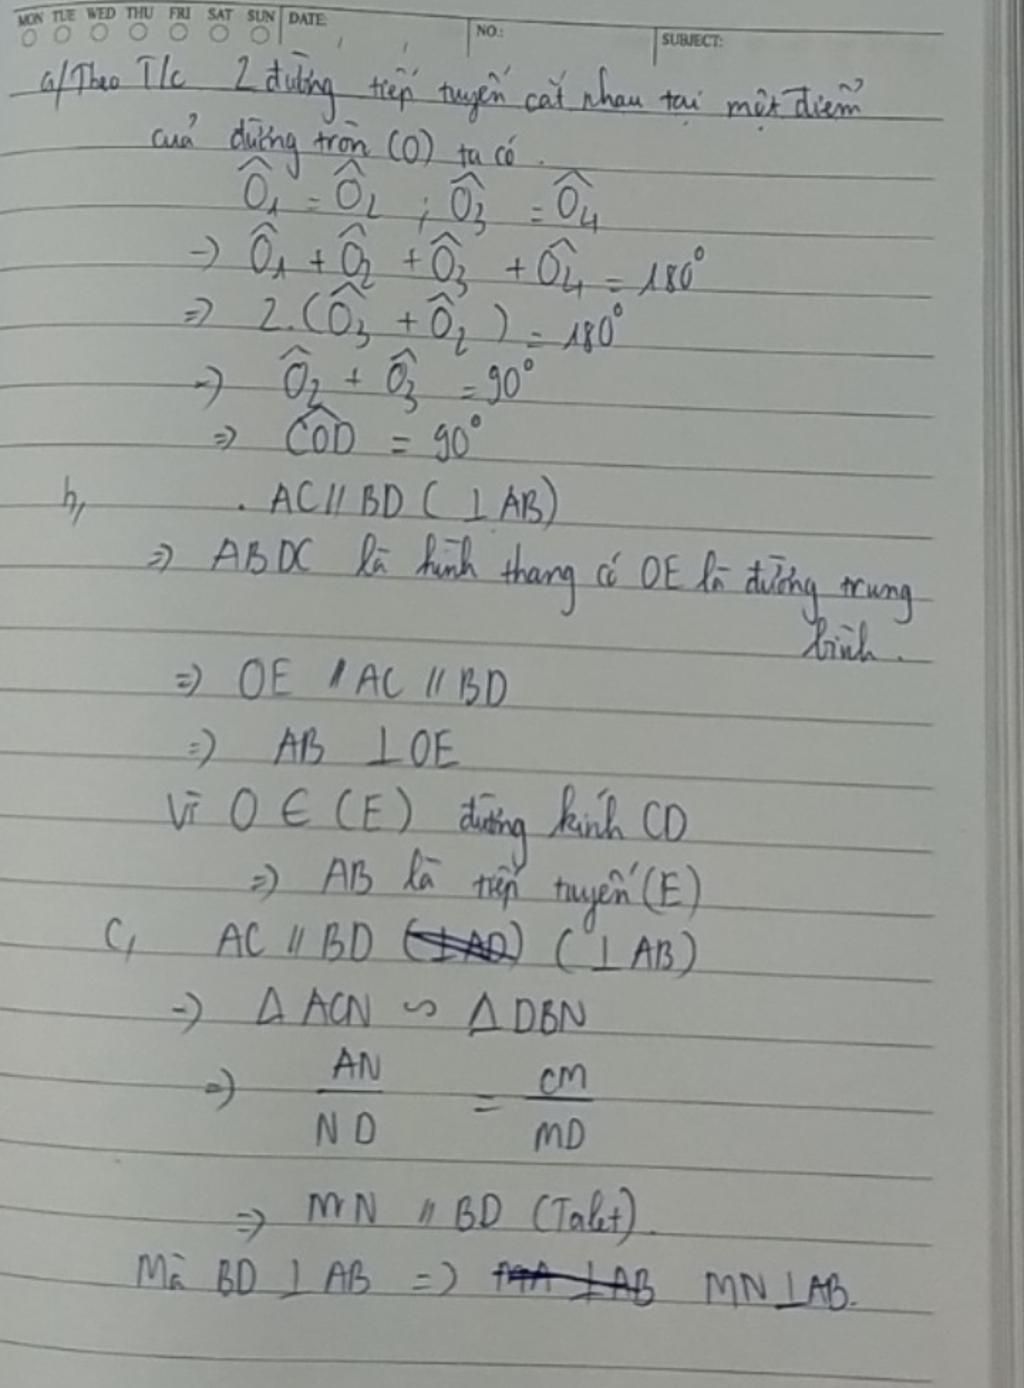 MON TUE WED THU FRI SAT SUN DATE: NO.: SUBJECT:
a/ Theo T/c 2 đường tiếp tuyến cắt nhau tại một điểm
của đường tròn (O) ta có.
Ô₁ = Ô₂ ; Ô₃ = Ô₄
→ Ô₁ + Ô₂ + Ô₃ + Ô₄ = 180°
⇒ 2.(Ô₃ + Ô₂) = 180°
→ Ô₂ + Ô₃ = 90°
⇒ \widehat{COD} = 90°
b, . AC // BD ( ⊥ AB)
⇒ ABDC là hình thang có OE là đường trung
bình.
⇒ OE // AC // BD
⇒ AB ⊥ OE
Vì O ∈ (E) đường kính CD
⇒ AB là tiếp tuyến (E)
C, AC // BD (⊥ AB)
→ Δ ACN ∽ Δ DBN
⇒ AN/ND = CM/MD
⇒ MN // BD (Talet).
Mà BD ⊥ AB ⇒ MN ⊥ AB.